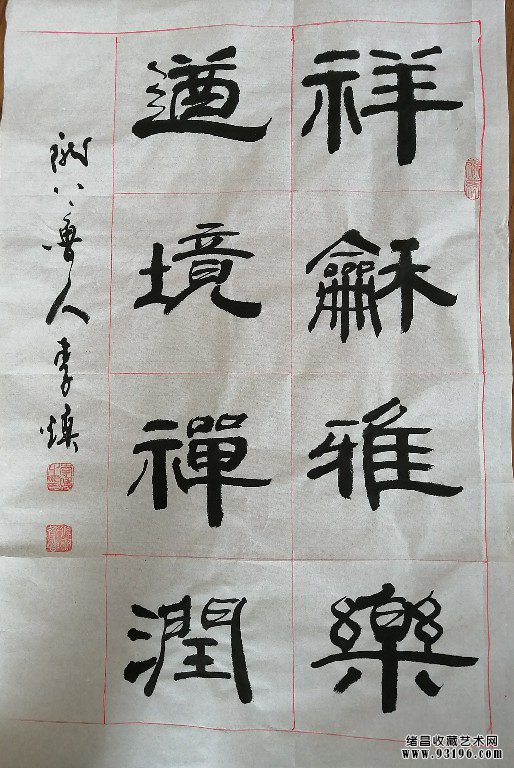 祥龢雅樂
遒境禪潤
魯人李
绪昌收藏艺术网
www.93196.com